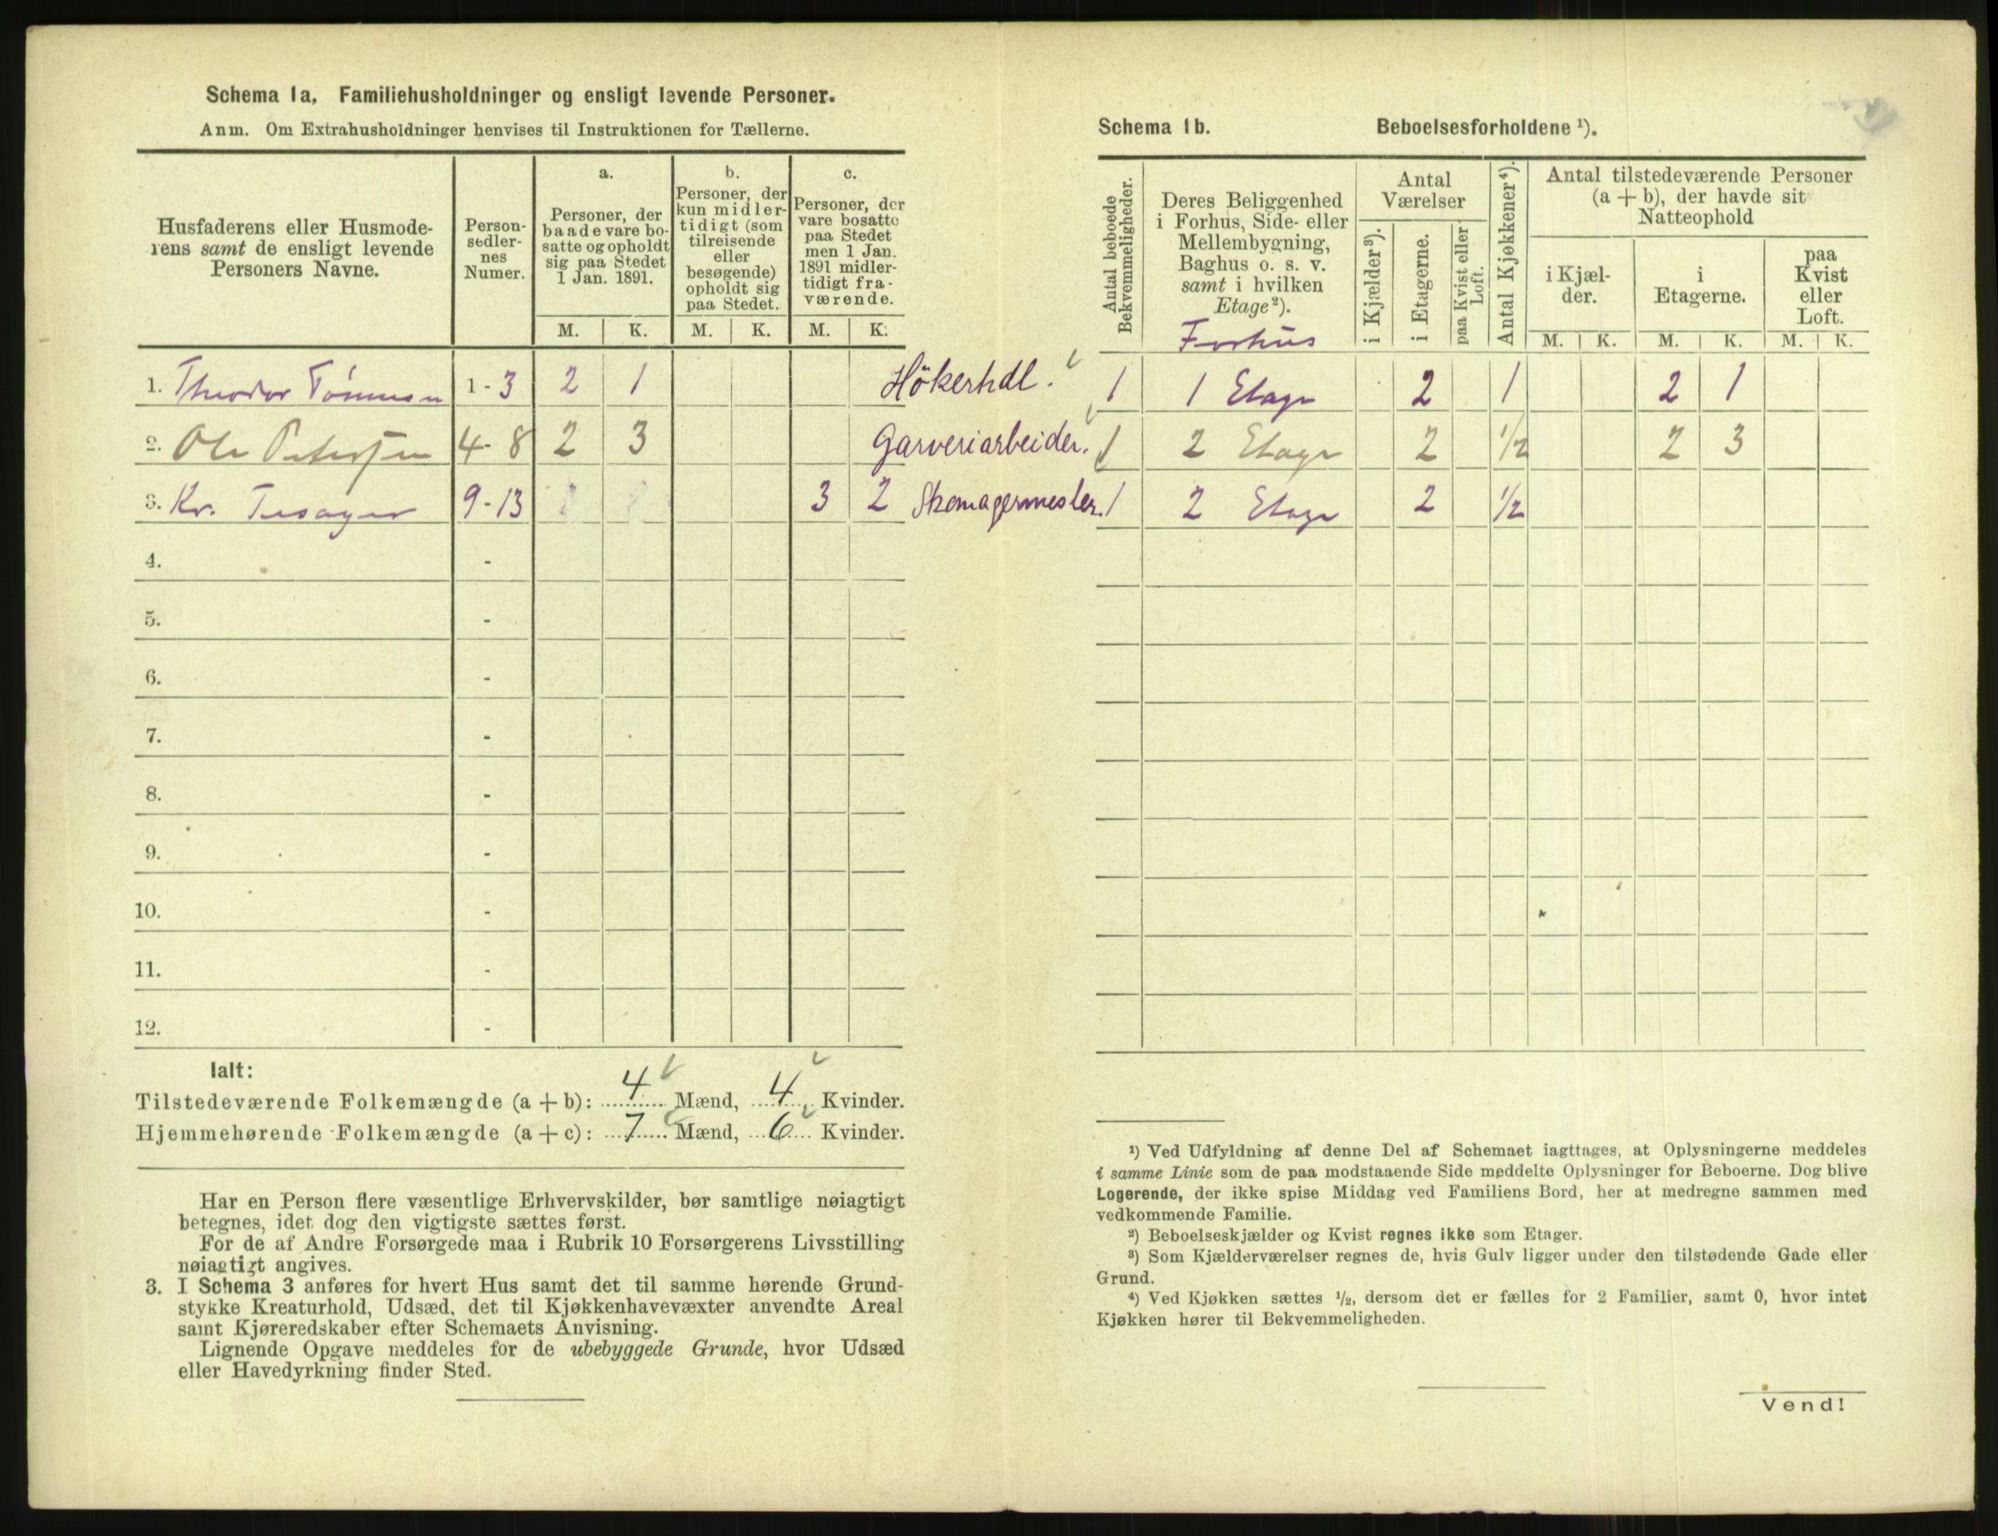 Schema 1a, Familiehusholdninger og ensligt levende Personer.
Anm. Om Extrahusholdninger henvises til Instruktionen for Tællerne.
Husfaderens eller Husmoderens samt de ensligt levende Personers Navne.
Personsedlernes Numer.
a. Personer, der baade vare bosatte og opholdt sig paa Stedet 1 Jan. 1891.
b. Personer, der kun midlertidigt (som tilreisende eller besøgende) opholdt sig paa Stedet.
c. Personer, der vare bosatte paa Stedet men 1 Jan. 1891 midlertidigt fraværende.
M. K. M. K. M. K.
1. Theodor Tønnesen 1-3 2 1 Hökerhdl.
2. Ole Petersen 4-8 2 3 Garveriarbeider.
3. Kr. 9-13 3 2 Skomagermester.
4. -
5. -
6. -
7. -
8. -
9. -
10. -
11. -
12. -
Ialt:
Tilstedeværende Folkemængde (a + b): 4 Mænd, 4 Kvinder.
Hjemmehørende Folkemængde (a + c): 7 Mænd, 6 Kvinder.
Har en Person flere væsentlige Erhvervskilder, bør samtlige nøiagtigt
betegnes, idet dog den vigtigste sættes først.
For de af Andre Forsørgede maa i Rubrik 10 Forsørgerens Livsstilling
nøiagtigt angives.
3. I Schema 3 anføres for hvert Hus samt det til samme hørende Grund-
stykke Kreaturhold, Udsæd, det til Kjøkkenhavevæxter anvendte Areal
samt Kjøreredskaber efter Schemaets Anvisning.
Lignende Opgave meddeles for de ubebyggede Grunde, hvor Udsæd
eller Havedyrkning finder Sted.
Schema 1b. Beboelsesforholdene ¹).
Antal beboede Bekvemmeligheder.
Deres Beliggenhed i Forhus, Side- eller Mellembygning, Baghus o. s. v. samt i hvilken Etage²).
Forhus
Antal Værelser
i Kjælder³).
i Etagerne.
paa Kvist eller Loft.
Antal Kjøkkener⁴).
Antal tilstedeværende Personer (a + b), der havde sit Natteophold
i Kjælder.
i Etagerne.
paa Kvist eller Loft.
M. K. M. K. M. K.
1 1 Etage 2 1 2 1
1 2 Etage 2 1/2 2 3
1 2 Etage 2 1/2
¹) Ved Udfyldning af denne Del af Schemaet iagttages, at Oplysningerne meddeles
i samme Linie som de paa modstaaende Side meddelte Oplysninger for Beboerne. Dog blive
Logerende, der ikke spise Middag ved Familiens Bord, her at medregne sammen med
vedkommende Familie.
²) Beboelseskjælder og Kvist regnes ikke som Etager.
³) Som Kjælderværelser regnes de, hvis Gulv ligger under den tilstødende Gade eller
Grund.
⁴) Ved Kjøkken sættes 1/2, dersom det er fælles for 2 Familier, samt 0, hvor intet
Kjøkken hører til Bekvemmeligheden.
Vend!